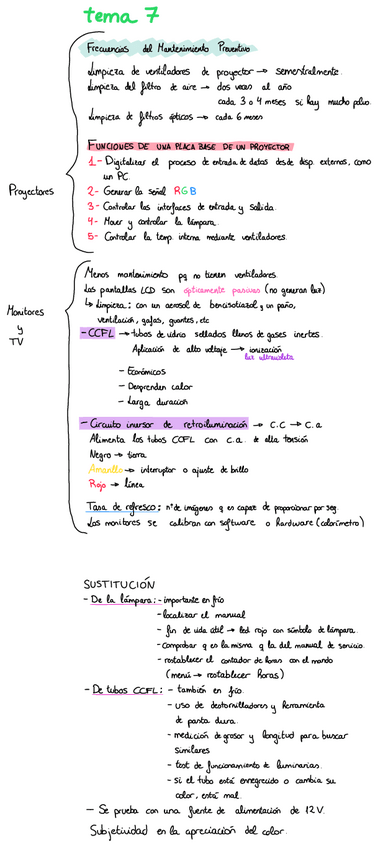 tema 7
Frecuencias del Mantenimiento Preventivo
Limpieza de ventiladores de proyector → semestralmente.
Limpieza del filtro de aire → dos veces al año
cada 3 o 4 meses si hay mucho polvo.
Limpieza de filtros ópticos → cada 6 meses
FUNCIONES DE UNA PLACA BASE DE UN PROYECTOR
1- Digitalizar el proceso de entrada de datos desde disp. externos, como
un PC.
2- Generar la señal RGB
3- Controlar las interfaces de entrada y salida.
4- Mover y controlar la lámpara.
5- Controlar la temp. interna mediante ventiladores.
Proyectores
Menos mantenimiento pq no tienen ventiladores.
Las pantallas LCD son ópticamente pasivas (no generan luz)
↳ Limpieza: con un aerosol de bencisotiazol y un paño,
ventilación, gafas, guantes, etc
Monitores
y
TV
- CCFL → tubos de vidrio sellados llenos de gases inertes.
Aplicación de alto voltaje → ionización
luz ultravioleta
- Económicos
- Desprenden calor
- Larga duración
- Circuito inversor de retroiluminación → C.C → C.a
Alimenta los tubos CCFL con c.a. de alta tensión
Negro → tierra
Amarillo → interruptor o ajuste de brillo
Rojo → línea
Tasa de refresco: nº de imágenes q es capaz de proporcionar por seg.
Los monitores se calibran con software o hardware (colorímetro)
SUSTITUCIÓN
- De la lámpara: - importante en frío
- localizar el manual
- fin de vida útil → led rojo con símbolo de lámpara.
- comprobar q es la misma q la del manual de servicio.
- restablecer el contador de horas con el mando
(menú → restablecer horas)
- De tubos CCFL: - también en frío.
- uso de destornilladores y herramienta
de punta dura.
- medición de grosor y longitud para buscar
similares
- test de funcionamiento de luminarias.
- si el tubo está ennegrecido o cambia su
color, está mal.
- Se prueba con una fuente de alimentación de 12 V.
Subjetividad en la apreciación del color.